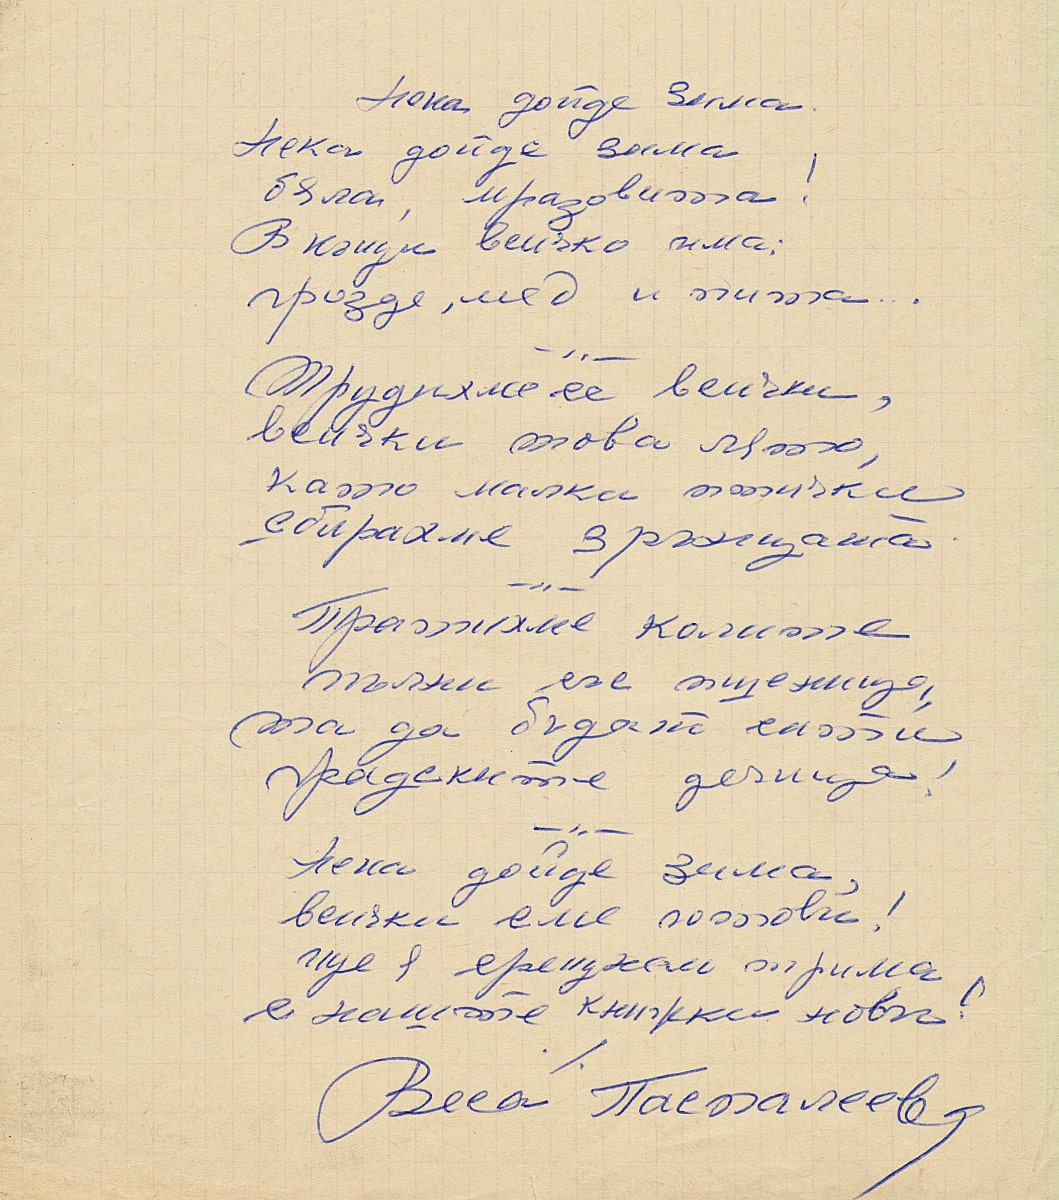 Нека дойде зима.
Нека дойде зима
бяла, мразовита!
В къщи всичко има:
грозде, мед и пита...
— „ —
Трудихме се всички,
всички това лято,
като малки птички
сбирахме зрънцата.
— „ —
Пратихме колите
пълни със пшеница,
та да бъдат сити
градските дечица!
— „ —
Нека дойде зима,
всички сме готови!
Ще я срещнем трима
с нашите книжки нови!
Веса Паспалеев